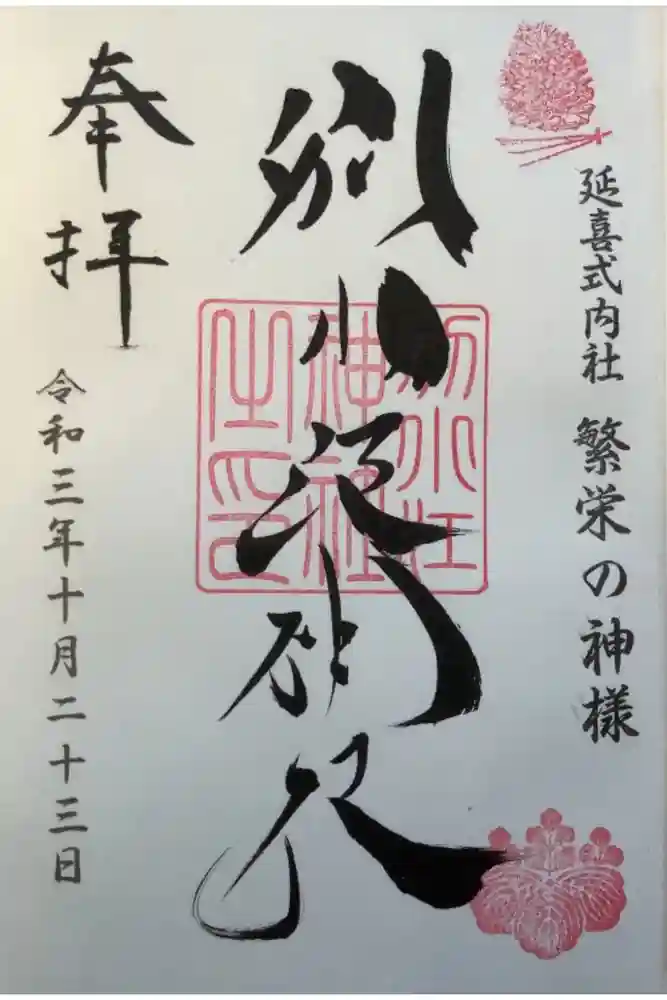 延喜式内社 繁栄の神様
別小江神社
別小江
神社
之印
奉拝
令和三年十月二十三日